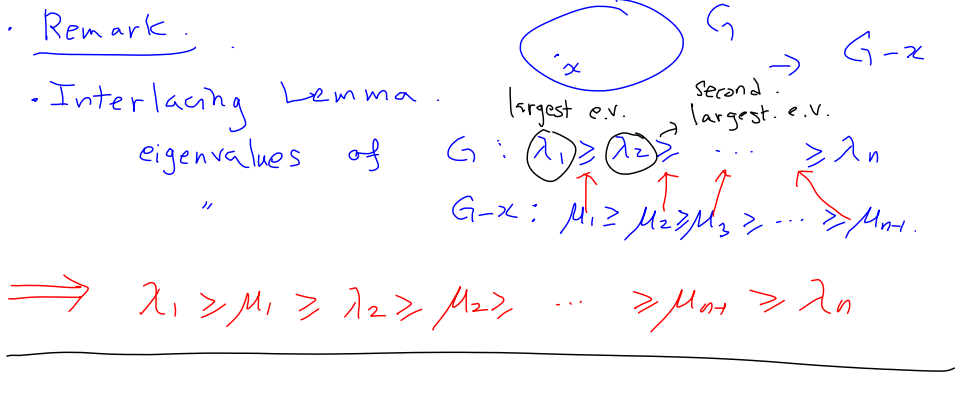 · Remark.
G
x
→ G-x
· Interlacing Lemma.
largest e.v.
second.
largest. e.v.
eigenvalues of G : λ₁ ≥ λ₂ ≥ ... ≥ λn
" G-x : μ₁ ≥ μ₂ ≥ μ₃ ≥ ... ≥ μn-1.
⟹ λ₁ ≥ μ₁ ≥ λ₂ ≥ μ₂ ≥ ... ≥ μn-1 ≥ λn